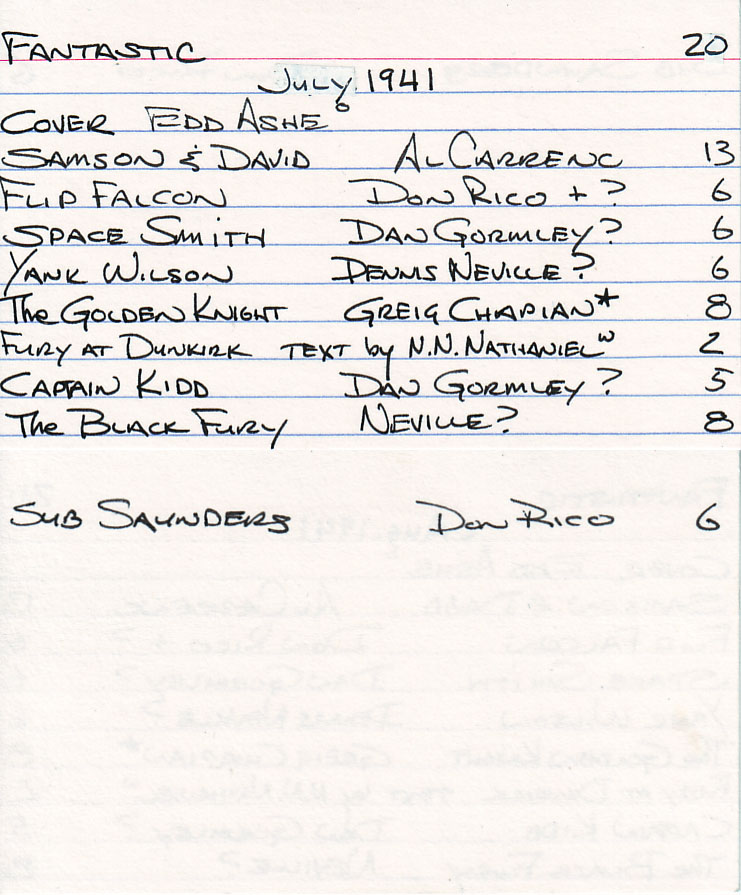 FANTASTIC 20
July 1941
COVER EDD ASHE°
SAMSON & DAVID AL CARRENO 13
FLIP FALCON DON RICO + ? 6
SPACE SMITH DAN GORMLEY? 6
YANK WILSON DENNIS NEVILLE? 6
The GOLDEN KNIGHT GREIG CHAPIAN* 8
FURY AT DUNKIRK TEXT by N.N. NATHANIEL^w 2
CAPTAIN KIDD DAN GORMLEY ? 5
The BLACK FURY NEVILLE? 8
SUB SAUNDERS DON RICO 6